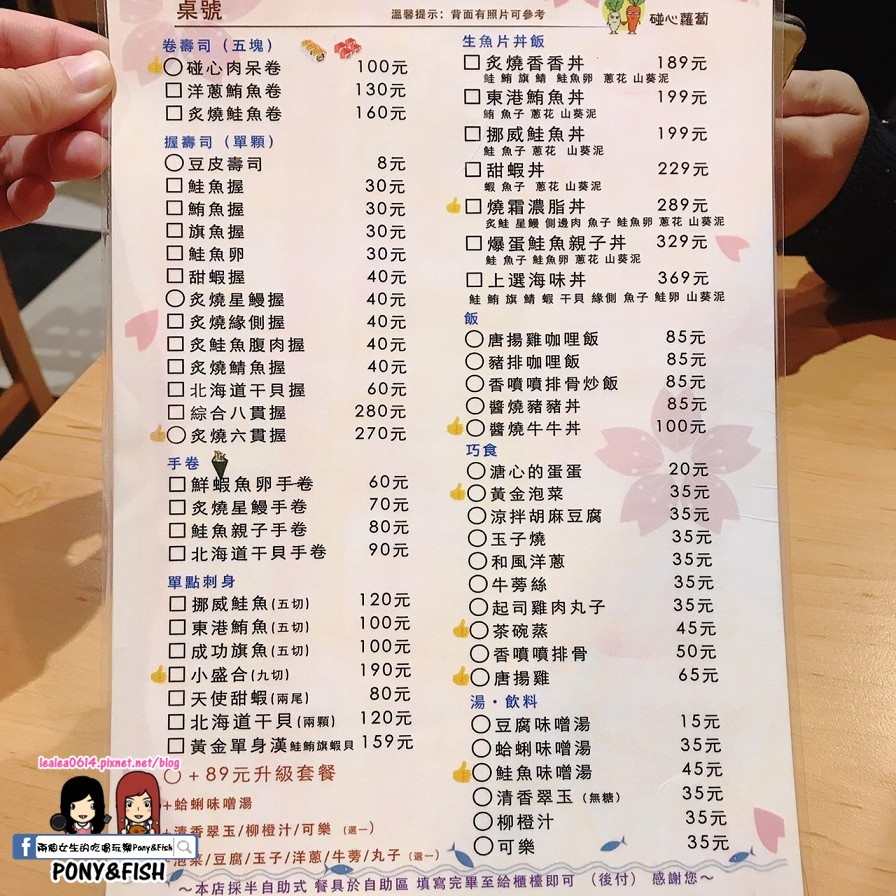 桌號
溫馨提示：背面有照片可參考
碰心蘿蔔
卷壽司（五塊）
碰心肉呆卷 100元
洋蔥鮪魚卷 130元
炙燒鮭魚卷 160元
握壽司（單顆）
豆皮壽司 8元
鮭魚握 30元
鮪魚握 30元
旗魚握 30元
鮭魚卵 30元
甜蝦握 40元
炙燒星鰻握 40元
炙燒緣側握 40元
炙鮭魚腹肉握 40元
炙燒鯖魚握 40元
北海道干貝握 60元
綜合八貫握 280元
炙燒六貫握 270元
手卷
鮮蝦魚卵手卷 60元
炙燒星鰻手卷 70元
鮭魚親子手卷 80元
北海道干貝手卷 90元
單點刺身
挪威鮭魚(五切) 120元
東港鮪魚(五切) 100元
成功旗魚(五切) 100元
小盛合(九切) 190元
天使甜蝦(兩尾) 80元
北海道干貝(兩顆) 120元
黃金單身漢 鮭鮪旗蝦貝 159元
+89元升級套餐
+蛤蜊味噌湯
+清香翠玉/柳橙汁/可樂 （選一）
泡菜/豆腐/玉子/洋蔥/牛蒡/丸子（選一）
生魚片丼飯
炙燒香香丼 189元
鮭 鮪 旗 鯖 鮭魚卵 蔥花 山葵泥
東港鮪魚丼 199元
鮪 魚子 蔥花 山葵泥
挪威鮭魚丼 199元
鮭 魚子 蔥花 山葵泥
甜蝦丼 229元
蝦 魚子 蔥花 山葵泥
燒霜濃脂丼 289元
炙鮭 星鰻 側邊肉 魚子 鮭魚卵 蔥花 山葵泥
爆蛋鮭魚親子丼 329元
鮭 魚子 鮭魚卵 蔥花 山葵泥
上選海味丼 369元
鮭 鮪 旗 鯖 蝦 干貝 緣側 魚子 鮭卵 山葵泥
飯
唐揚雞咖哩飯 85元
豬排咖哩飯 85元
香噴噴排骨炒飯 85元
醬燒豬豬丼 85元
醬燒牛牛丼 100元
巧食
溏心的蛋蛋 20元
黃金泡菜 35元
涼拌胡麻豆腐 35元
玉子燒 35元
和風洋蔥 35元
牛蒡絲 35元
起司雞肉丸子 35元
茶碗蒸 45元
香噴噴排骨 50元
唐揚雞 65元
湯・飲料
豆腐味噌湯 15元
蛤蜊味噌湯 35元
鮭魚味噌湯 45元
清香翠玉（無糖） 35元
柳橙汁 35元
可樂 35元
～本店採半自助式 餐具於自助區 填寫完畢至給櫃檯即可 （後付） 感謝您～
lealea0614.pixnet.net/blog
兩個女生的吃喝玩樂Pony&Fish
PONY&FISH